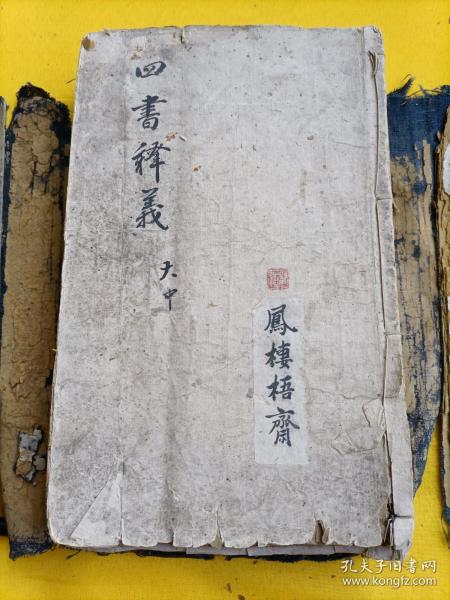 四書释義
大中
鳳棲梧齋
孔夫子旧书网
www.kongfz.com